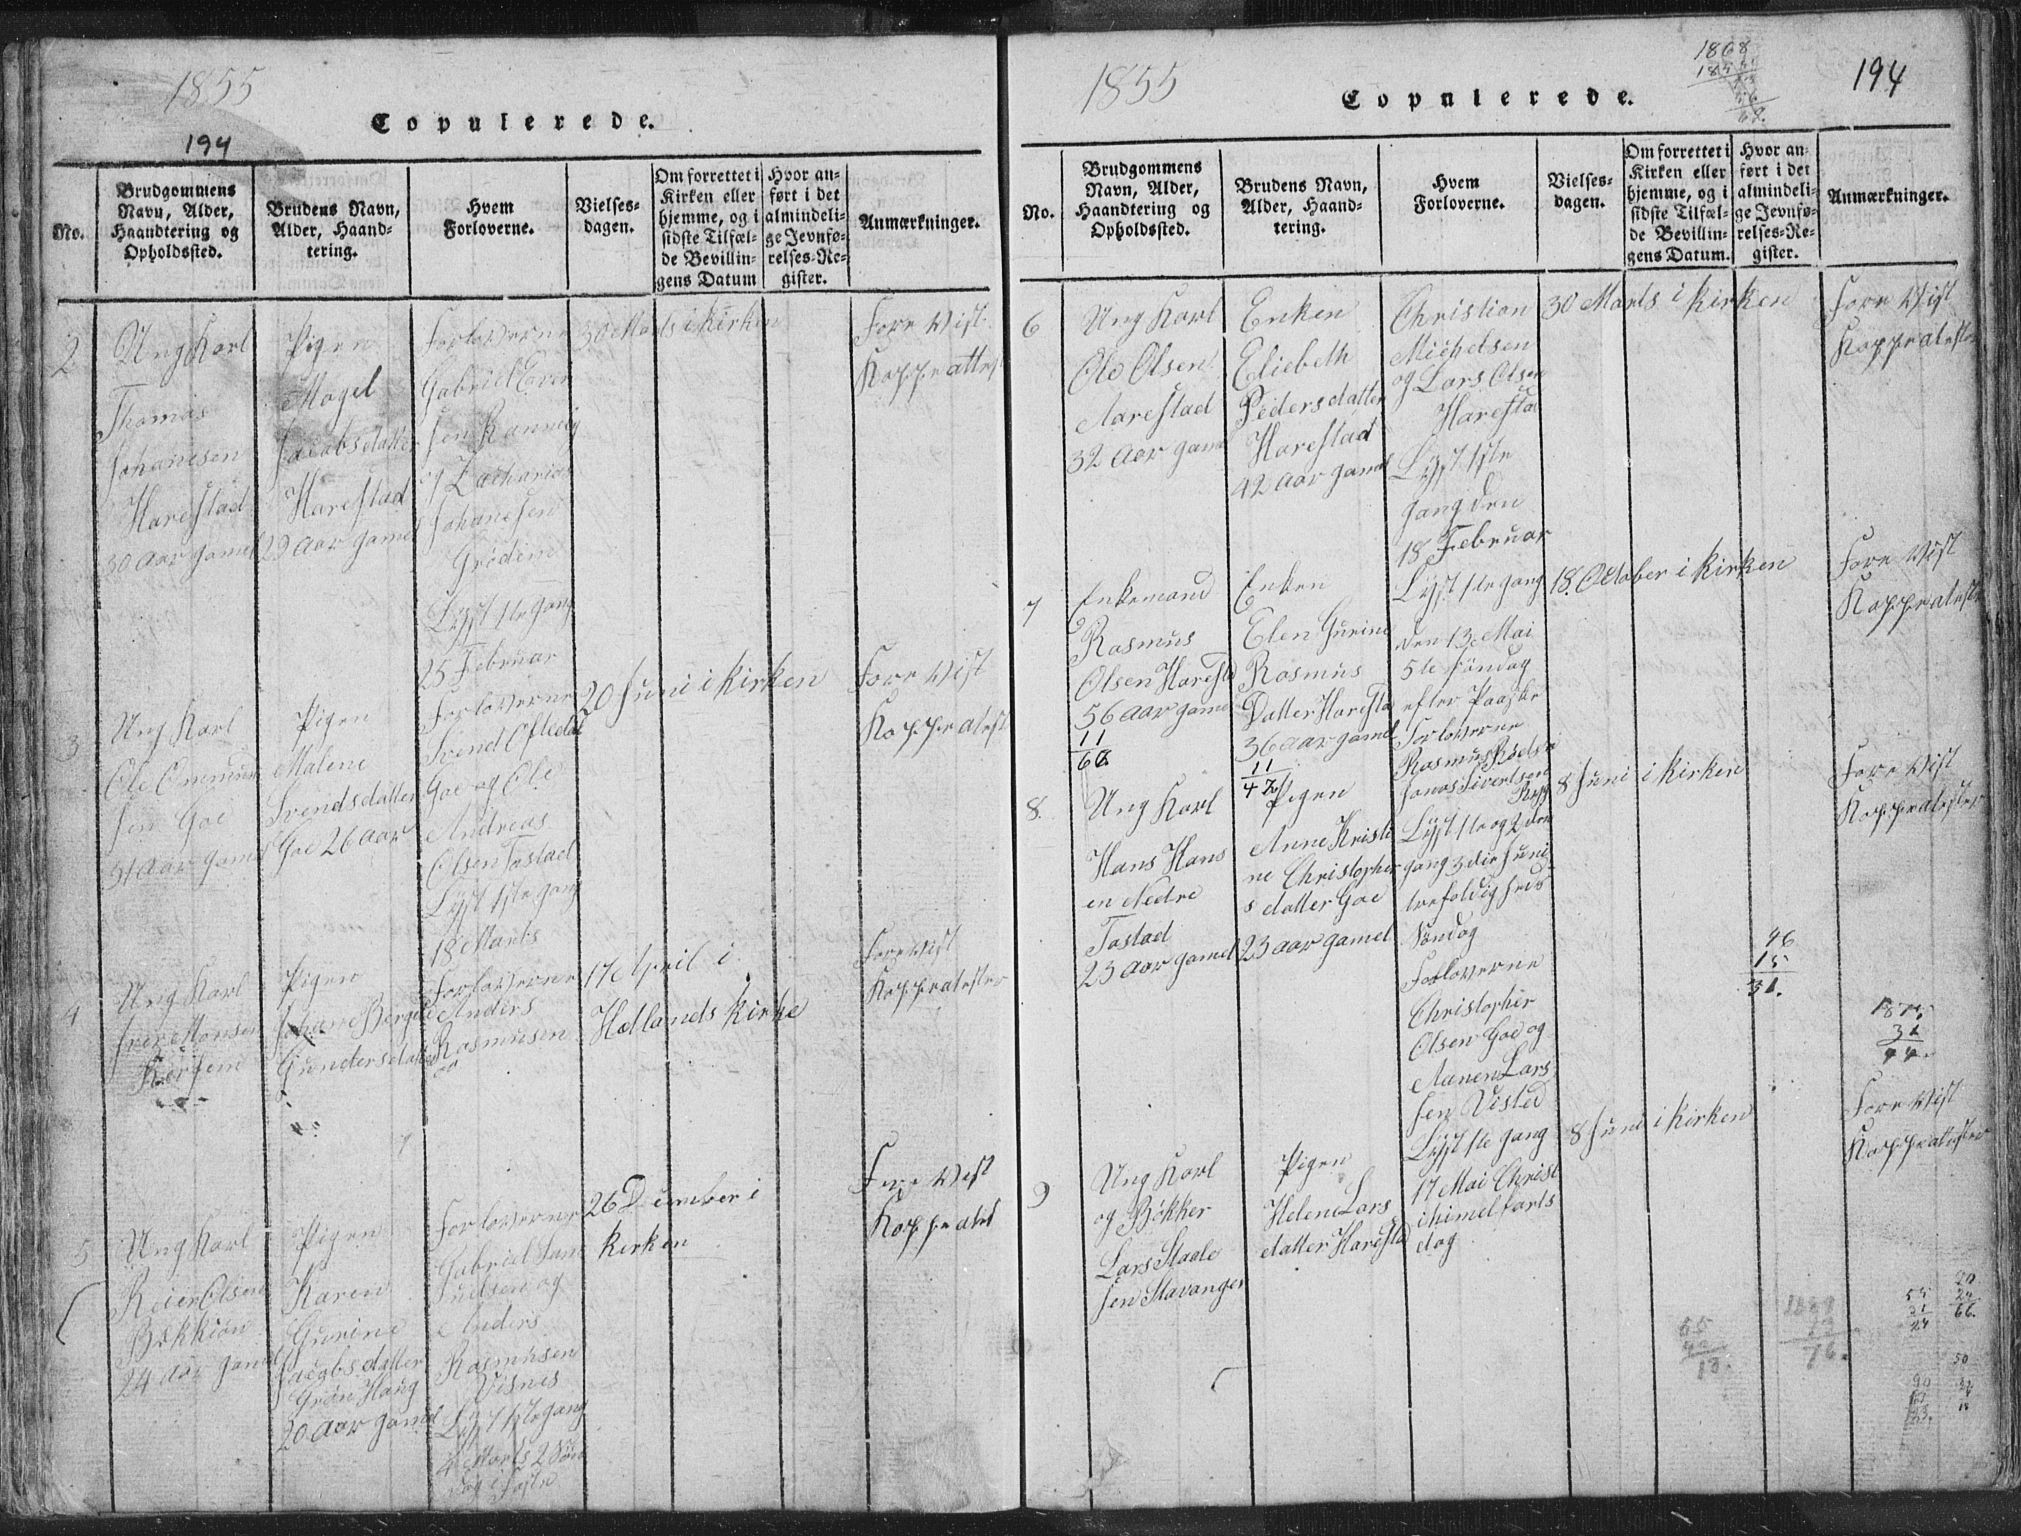 1855
Copulerede.
194
No.
Brudgommens
Navn, Alder,
Haandtering og
Opholdssted.
Brudens Navn,
Alder, Haand-
tering.
Hvem
Forloverne.
Vielses-
dagen.
Om forrettet i
Kirken eller
hjemme, og i
sidste Tilfæl-
de Bevillin-
gens Datum
Hvor an-
ført i det
almindeli-
ge Jevnfø-
relses-Re-
gister.
Anmærkninger.
2
Ung Karl
Thomas
Johanesen
Harestad
30 Aar gamel
Pigen
Magel
Jacobsdatter
Harestad
29 Aar gamel
Forloverne
Gabriel
og Zacharias
Johanesen
Grødem
Lyst 1ste gang
25 Februar
30 Marts i kirken
Fore Vist
Koppeattest
3
Ung Karl
Ole
sen Goe
31 Aar gamel
Pigen
Malene
Svendsdatter
Goe 26 aar
Forloverne
Svend
Goe og Ole
Andreas
Olsen Tastad
Lyst 1ste gang
18 Marts
20 Juni i kirken
Fore Vist
Koppeatest
4
Ung Karl
Pigen
Gundersdatter
Forloverne
Anders
Rasmusen
17 April i
Hetlands kirke
Fore Vist
Koppeatester
5
Ung Karl
Reier Olsen
24 aar gamel
Pigen
Karen
Gurine
Jacobsdatter
Grøn Haug
20 Aar gamel
Forloverne
Gabriel
og
Anders
Rasmusen
Visnes
Lyst 1ste gang
4 Marts 2 Søn
dag i Faste
26 December i
kirken
Fore Vist
Koppeatest
1855
Copulerede.
1868
194
No.
Brudgommens
Navn, Alder,
Haandtering og
Opholdssted.
Brudens Navn,
Alder, Haand-
tering.
Hvem
Forloverne.
Vielses-
dagen.
Om forrettet i
Kirken eller
hjemme, og i
sidste Tilfæl-
de Bevillin-
gens Datum.
Hvor an-
ført i det
almindeli-
ge Jevnfø-
relses-Re-
gister.
Anmærkninger.
6
Ung Karl
Ole Olsen
Aarestad
32 Aar gamel
Enken
Eliebeth
Pedersdatter
Harestad
42 Aar gamel
Christian
Michelsen
og Lars Olsen
Harestad
Lyst 1ste
gang den
18 Februar
30 Marts i kirken
Fore Vist
Koppeatester
7
Enkemand
Rasmus
Olsen Harestd
56 aar gamel
11
Enken
Elen Gurine
Rasmus
Datter Haresta
36 aar gamel
11
Lyst 1ste gang
den 13 Mai
5te Søndag
efter Paaske
Forloverne
Rasmus
Jonas Sivertsen
18 October i kirken
Fore Vist
Koppeatest
8.
Ung Karl
Hans Hans
en Nedre
Tastad
23 Aar gamel
Pigen
Anne Kristi
ne Christopher
s datter Goe
23 aar gamel
Lyst 1ste og 2den
gang 3die Juni
trefoldigheds
Søndag
Forloverne
Christopher
Olsen Goe og
Aanen Lars
sen Visted
8 Juni i kirken
Fore Vist
Koppeatester
46
15
31.
9
Ung Karl
og Bøkker
Lars Staale
sen Stavanger
Pigen
Helene Lars
datter Harestad
Lyst 1ste gang
17 Mai Christ
ihimelfarts
dag
8 Juni i kirken
Fore Vist
Koppeatester